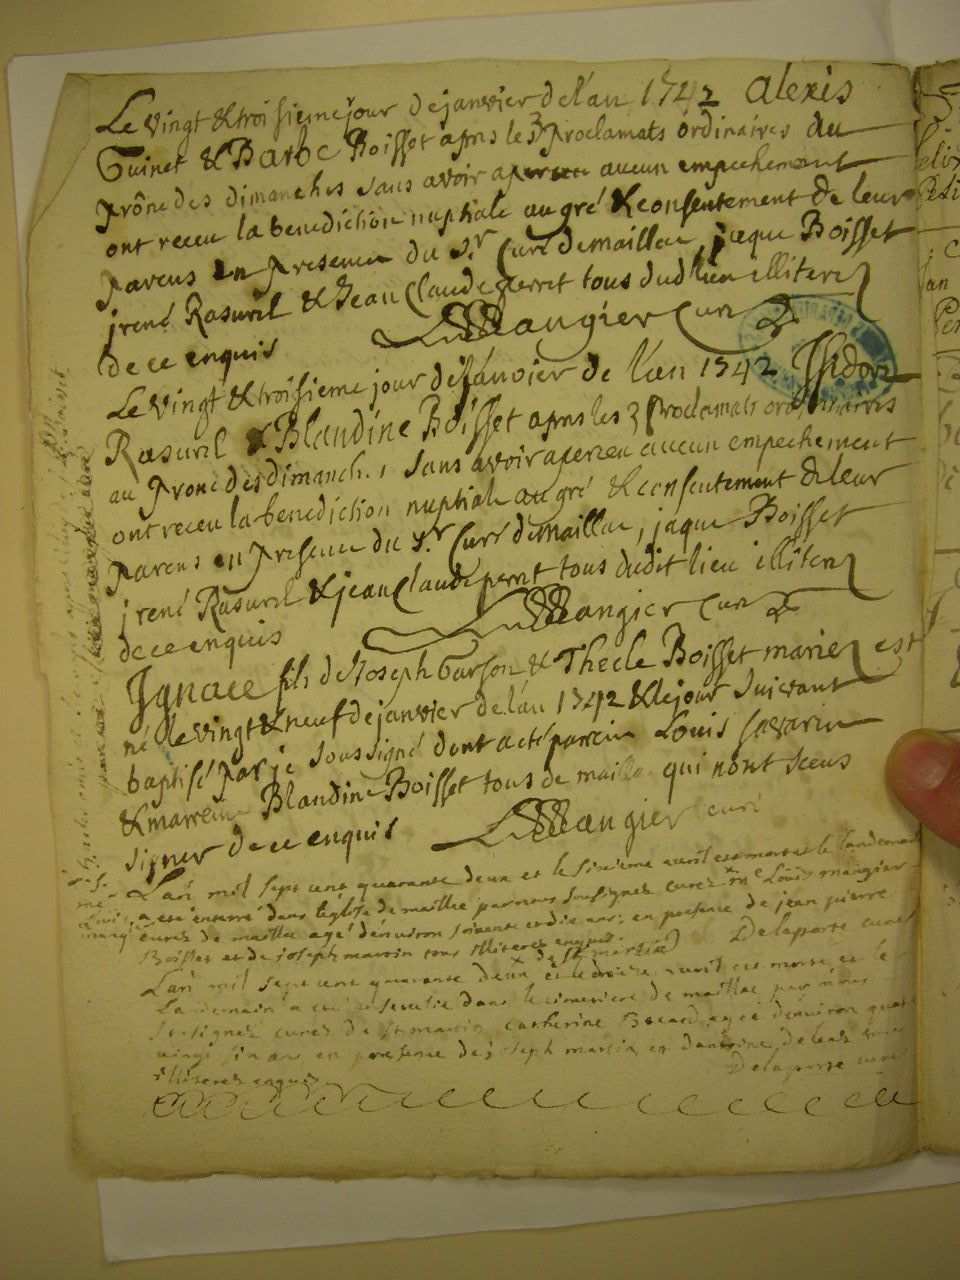 Le vingt & troisieme jour de janvier de l'an 1742 Alexis
Guinet & Barbe Boisset apres les 3 proclamats ordinaires du
prône des dimanches sans avoir aperceu aucun empechement
ont receu la benediction nuptiale au gré & consentement de leur
parens en presence du Sr. Curé de maillac, jaque Boisset
jrené Rasurel & Jean Claude perret tous dud lieu illiterez
de ce enquis Mangier Curé
Le vingt & troisieme jour de janvier de l'an 1742 Isidore
Rasurel & Blandine Boisset apres les 3 proclamats ordinaires
au prone des dimanches sans avoir aperceu aucun empechement
ont receu la benediction nuptiale au gré & consentement de leur
parens en presence du Sr. Curé de maillac, jaque Boisset
jrené Rasurel & jean Claude perret tous dudit lieu illiterez
de ce enquis Mangier Curé
Ignace fils de Joseph Garson & Thecle Boisset mariez est
né le vingt & neuf de janvier de l'an 1742 & le jour suivant
baptisé par je soussigné dont acte parein Louis Savarin
& marreine Blandine Boisset tous de maillac qui n'ont sceus
signer de ce enquis Mangier curé
L'an mil sept cent quarante deux et le sixieme avril est mort et le landemain
a eté enterré dans l'eglise de maillac par nous soussignez curez Mre Louis mangier
curez de maillac agé d'environ soixante et dix ans; en presence de jean pierre
Boisset et de joseph martin tous illiterez enquis. Delaporte curé
de St martin
L'an mil sept cent quarante deux et le avril est morte et le
landemain a eté ensevelie dans le cimetiere de maillac par nous
soussignez curez de St martin catherine agée d'environ quatre
vingt six ans en presence de joseph martin et
illiterez enquis Delaporte curé